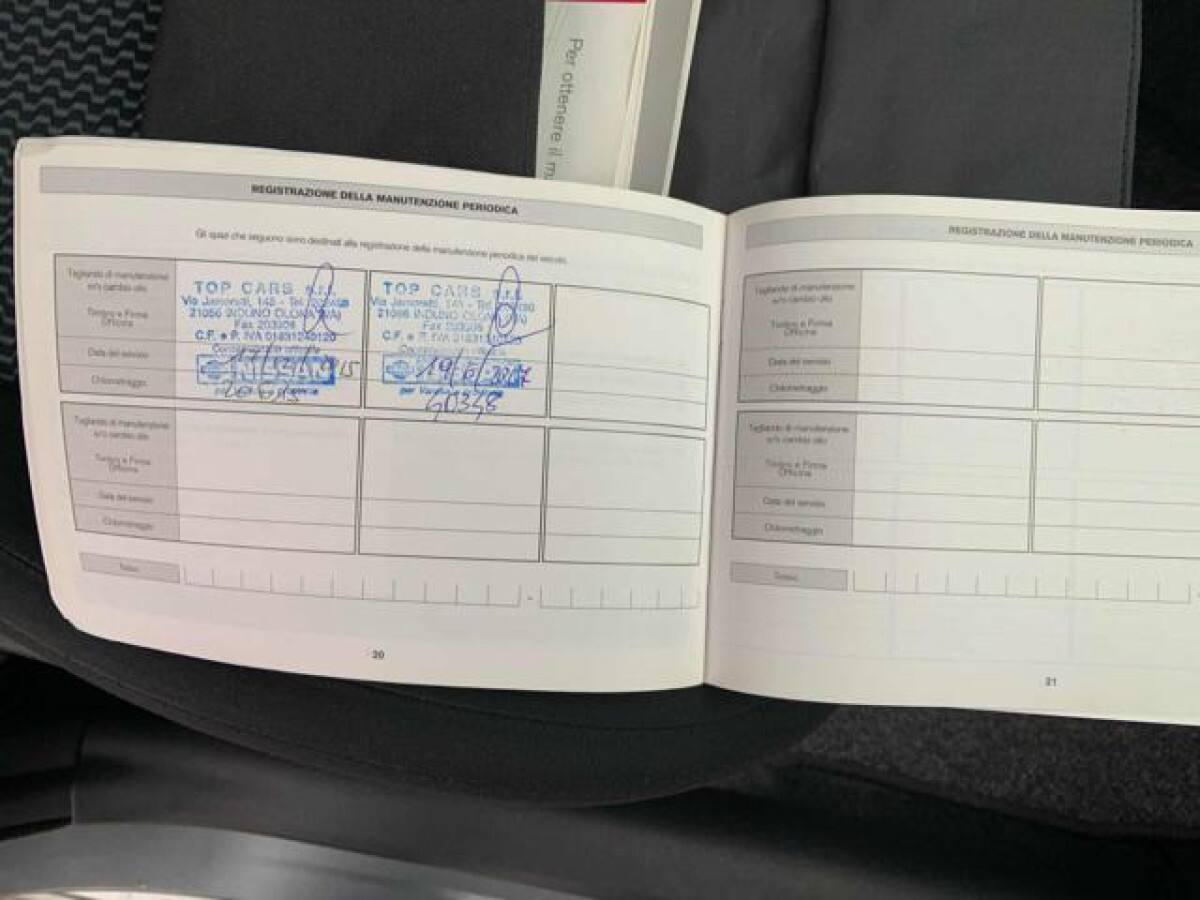 Per ottenere il m
REGISTRAZIONE DELLA MANUTENZIONE PERIODICA
Gli spazi che seguono sono destinati alla registrazione della manutenzione periodica del veicolo.
Tagliando di manutenzione
e/o cambio olio
Timbro e Firma
Officina
Data del servizio
Chilometraggio
TOP CARS s.r.l.
Via Jamoretti, 145 - Tel.
21056 INDUNO OLONA (VA)
Fax 203206
C.F. e P. IVA 01831240120
NISSAN
TOP CARS s.r.l.
Via Jamoretti, 145 - Tel.
21056 INDUNO OLONA (VA)
Fax 203206
C.F. e P. IVA
19/6/2017
40348
Tagliando di manutenzione
e/o cambio olio
Timbro e Firma
Officina
Data del servizio
Chilometraggio
Telaio
20
REGISTRAZIONE DELLA MANUTENZIONE PERIODICA
Tagliando di manutenzione
e/o cambio olio
Timbro e Firma
Officina
Data del servizio
Chilometraggio
Tagliando di manutenzione
e/o cambio olio
Timbro e Firma
Officina
Data del servizio
Chilometraggio
Telaio
21